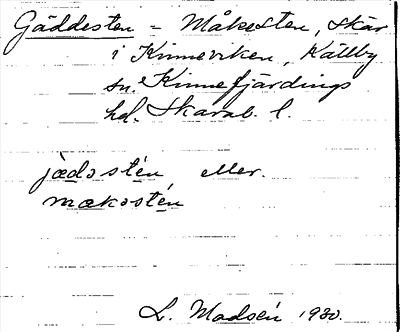 Gäddesten = Måkesten, skär
i Kinneviken, Källby
sn. Kinnefjärdings
hd. Skarab. l.
jædəstén eller
mækəstén
L. Madsén 1930.